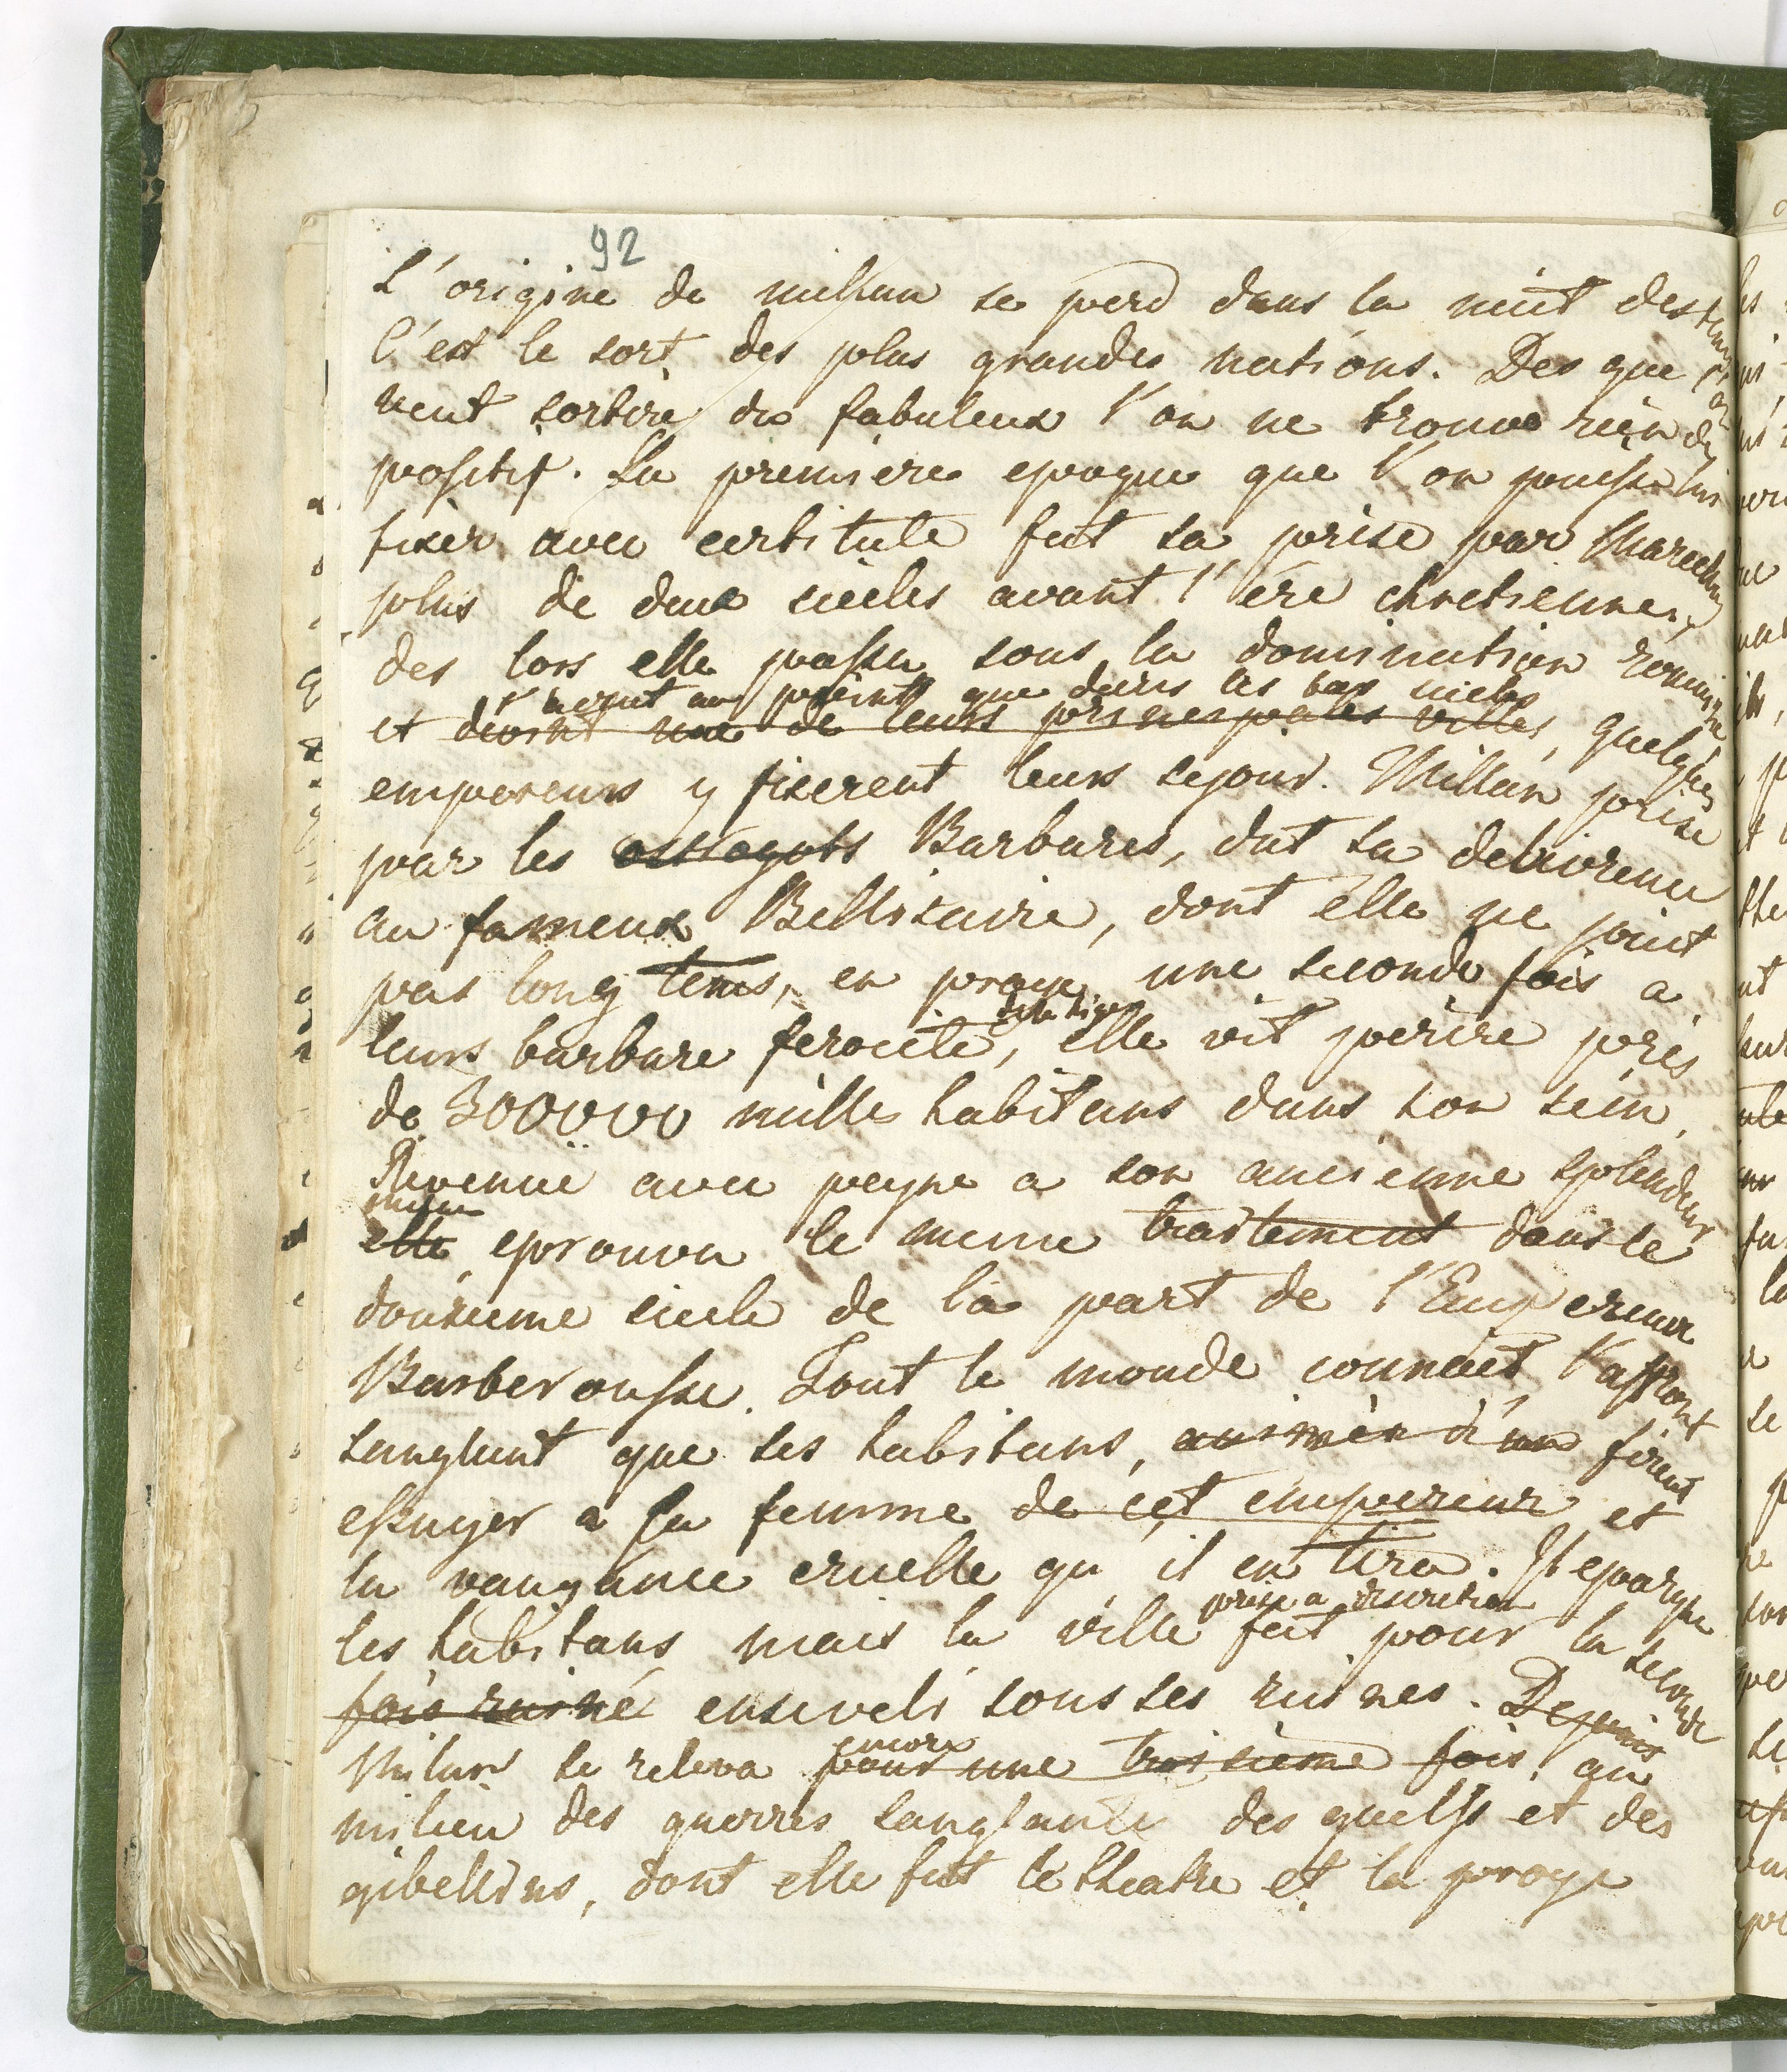 92
L'origine de milan se perd dans la nuit des tems
C'est le sort des plus grandes nations. Des que l'on
veut sortire du fabuleux l'on ne trouve rien de
positif. La premiere epoque que l'on puisse lui
fixer avec certitute fut sa prise par Marcellus
plus de deux siecles avant l'ère chretienne,
des lors elle passa sous la domination romaine
point que dans les bas siecles
et devint une de leurs principales villes, quelques
empereurs y fixerent leurs sejour. Millan prise
par les ostrogots Barbares, dut sa delivrence
au fameux Bellisaire, dont elle ne jouit
pas long tems, en proye une seconde fois a
leurs barbare ferocité, elle vit perire près
de 300000 mille habitans dans son sein,
Revenue avec peyne a son ancienne splendeur
elle eprouva le meme traitement dans le
douzieme siecle de la part de l'Empereur
Barberousse. Tout le monde connoit l'affront
sanglant que ses habitans, animés d'un firent
essuyer a sa femme de cet empereur et
la vangance cruelle qu'il en tira. Il epargna
prise a discretion
les habitans mais la ville fut pour la seconde
fois ruiné enseveli sous ses ruines. Depuis
encore
Milan se releva pour une troisieme fois, au
milieu des guerres sanglante des guelfs et des
gibellins, dont elle fut le theatre et la proye